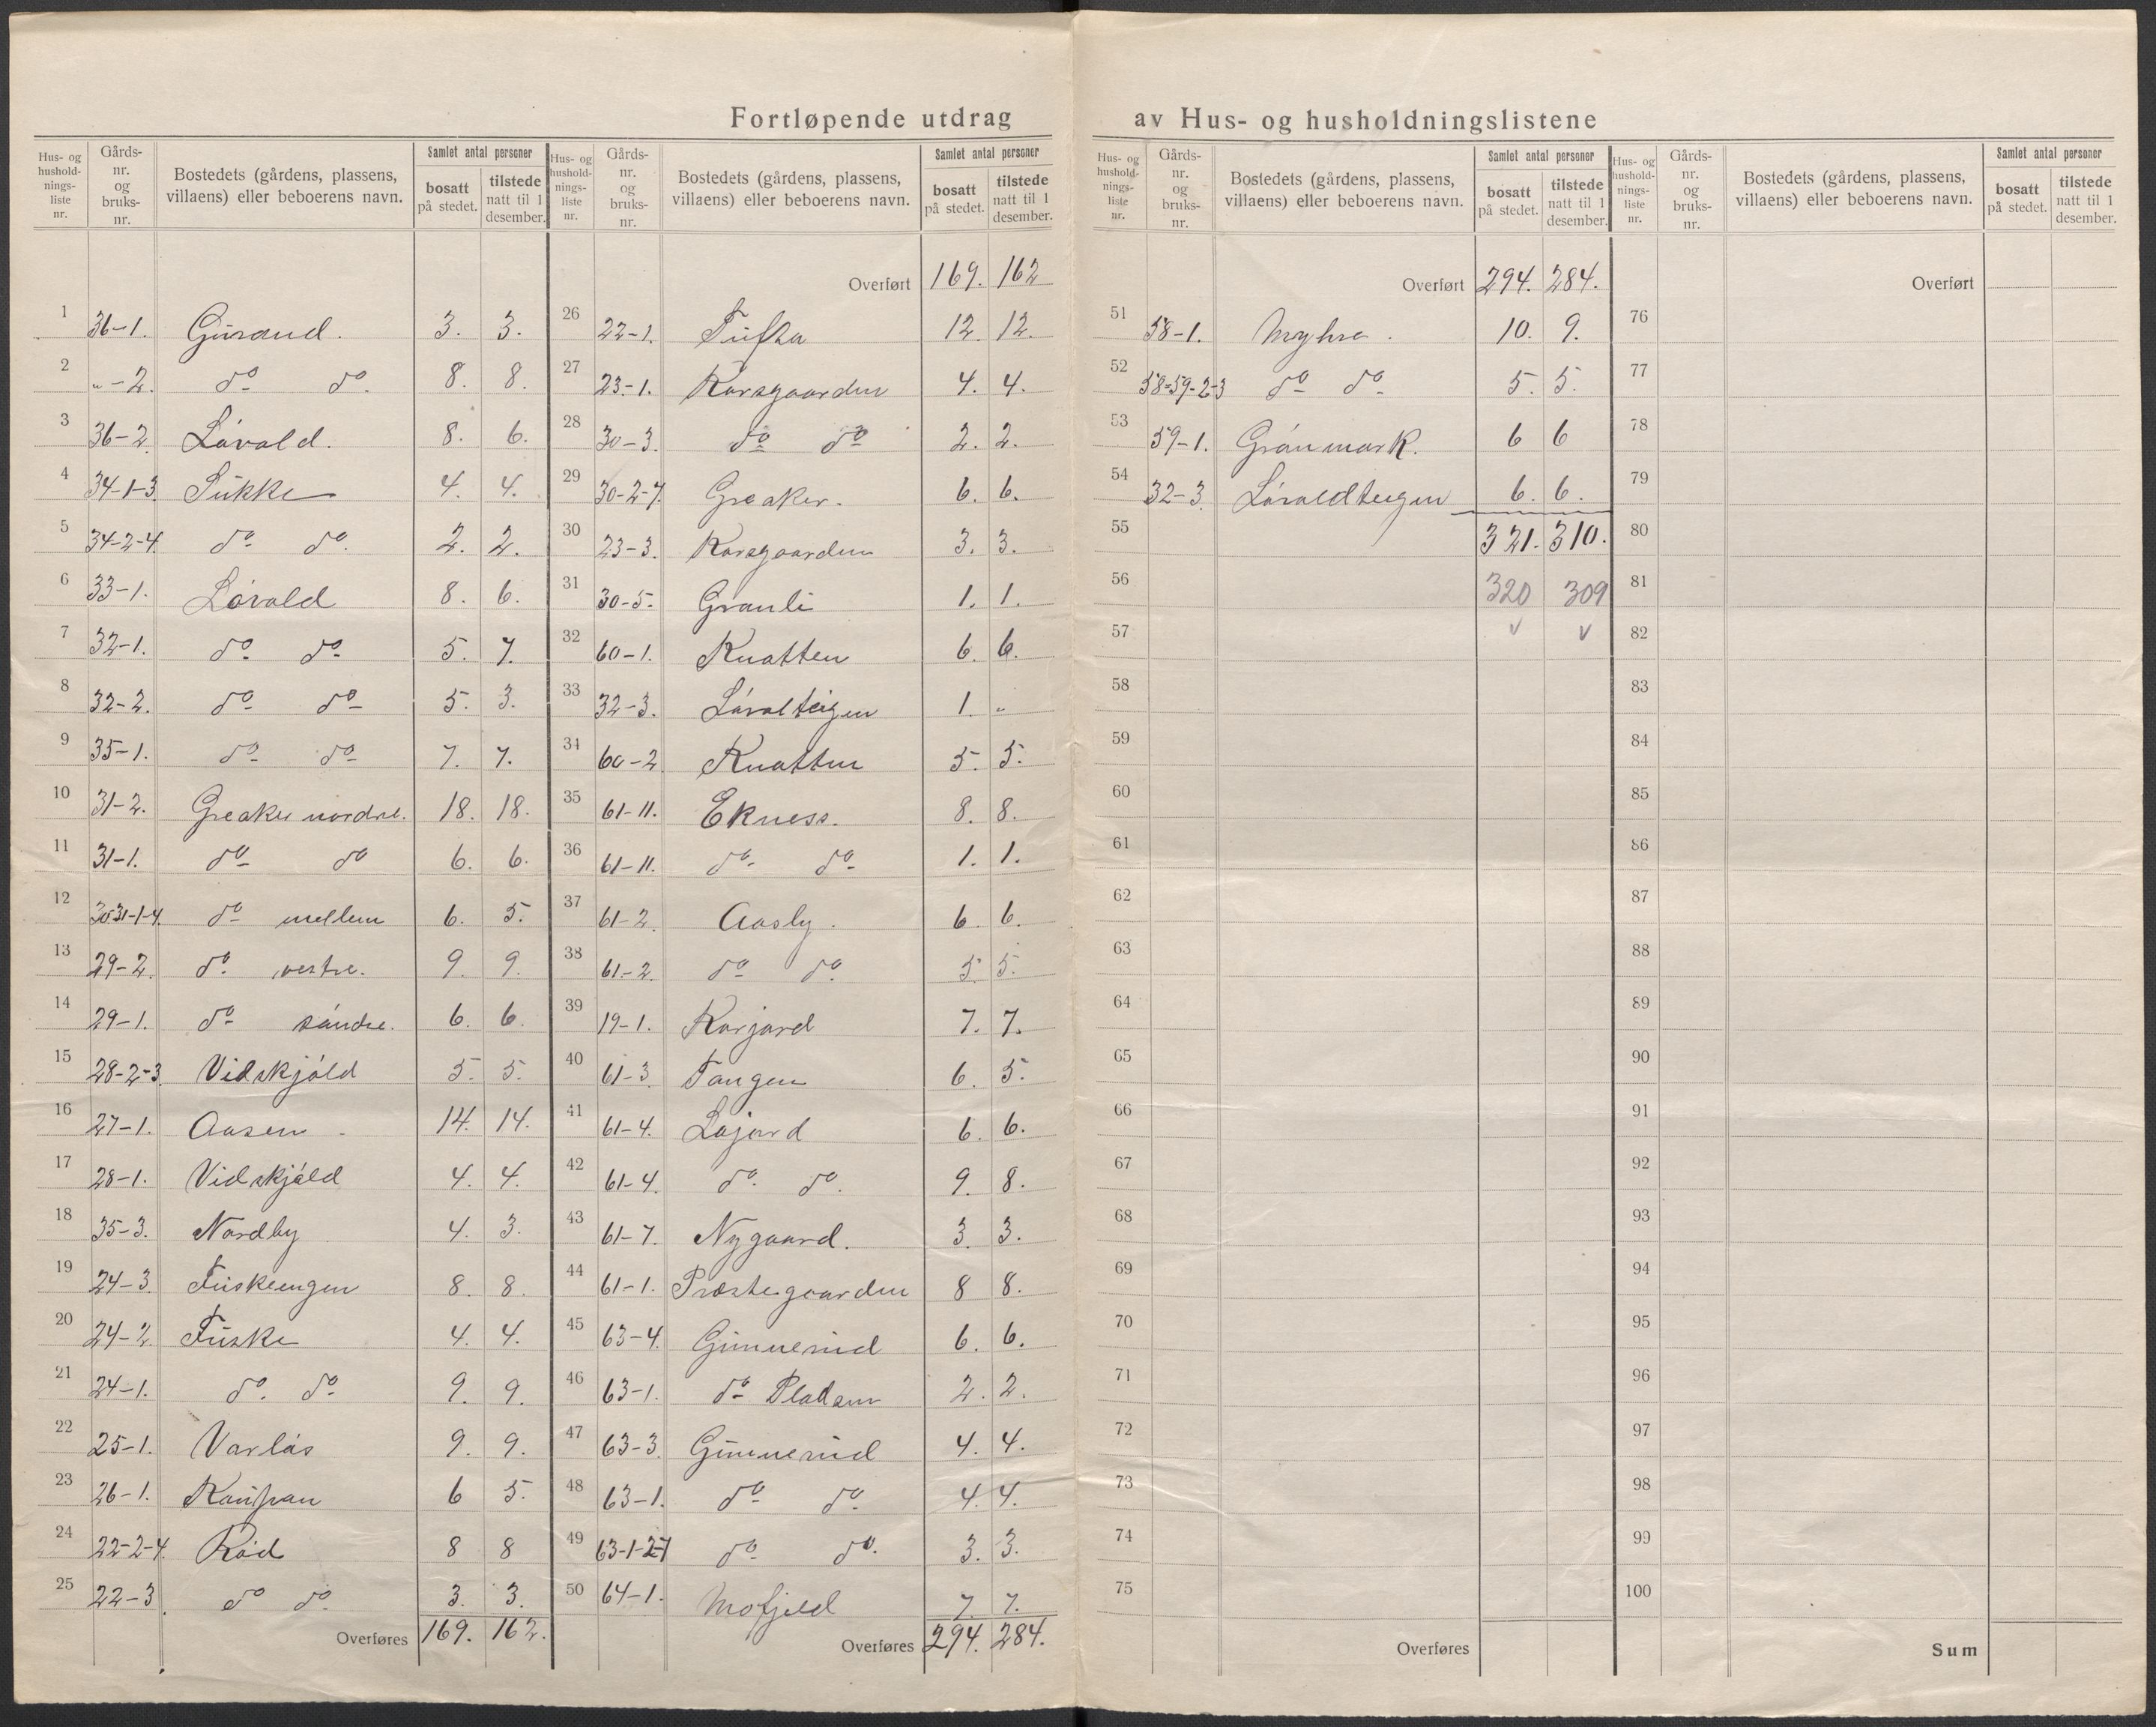 Fortløpende utdrag av Hus- og husholdningslistene
Hus- og husholdningsliste nr. Gårdsnr. og bruksnr. Bostedets (gårdens, plassens, villaens) eller beboerens navn. Samlet antal personer bosatt på stedet. tilstede natt til 1 desember.
1 36-1. Gürand. 3. 3.
2 " -2. do do. 8. 8.
3 36-2 Lövald. 8. 6.
4 34-1-3. Sukke 4. 4.
5 34-2-4. do do. 2. 2.
6 33-1. Lövold 8. 6.
7 32-1. do. do 5. 7.
8 32-2. do do 5. 3.
9 35-1. do do 7. 7.
10 31-2. Greaker nordre. 18. 18.
11 31-1. do do 6. 6.
12 30-31-1-4. do mellem 6. 5.
13 29-2. do. vestre. 9. 9.
14 29-1. do söndre. 6. 6.
15 28-2-3. Vidskjöld 5. 5.
16 27-1. Aasen 14. 14.
17 28-1. Vidskjöld 4. 4.
18 35-3. Nordby 4. 3.
19 24-3. Fuskeengen 8. 8.
20 24-2. Fuske 4. 4.
21 24-1. do. do 9. 9.
22 25-1. Varlös 9. 9.
23 26-1. Kaupan 6 5.
24 22-2-4. Röd 8 8
25 22-3. do do. 3. 3.
Overføres 169. 162.
Hus- og husholdningsliste nr. Gårdsnr. og bruksnr. Bostedets (gårdens, plassens, villaens) eller beboerens navn. Samlet antal personer bosatt på stedet. tilstede natt til 1 desember.
Overført 169. 162
26 22-1. Tufta 12. 12.
27 23-1. Korsgaarden 4. 4.
28 30-3. do do 2. 2.
29 30-2-7. Greaker. 6. 6.
30 23-3. Korsgaarden 3. 3.
31 30-5. Granli 1. 1.
32 60-1. Knatten 6. 6.
33 32-3. Lövalteigen 1. "
34 60-2. Knatten 5. 5.
35 61-11. Ekness. 8. 8.
36 61-11. do. do. 1. 1.
37 61-2. Aasly. 6. 6.
38 61-2. do do. 5. 5.
39 19-1. Korjord 7. 7.
40 61-3. Tangen 6. 5.
41 61-4. Lajord 6. 6.
42 61-4. do. do. 9. 8.
43 61-7. Nygaard. 3. 3.
44 61-1. Prœstegaarden 8 8.
45 63-4. Gunnerud 6. 6.
46 63-1. do Pladsen 2. 2.
47 63-3. Gunnerud 4. 4.
48 63-1. do do. 4. 4.
49 63-1-2-7 do do. 3. 3.
50 64-1. Mofjeld 7. 7.
Overføres 294. 284.
Hus- og husholdningsliste nr. Gårdsnr. og bruksnr. Bostedets (gårdens, plassens, villaens) eller beboerens navn. Samlet antal personer bosatt på stedet. tilstede natt til 1 desember.
Overført 294. 284.
51 58-1. Myhre. 10. 9.
52 58-59-2-3 do do 5. 5.
53 59-1. Grönmark. 6 6
54 32-3. Lövoldteigen 6. 6.
55 321. 310.
56 320 309
57 v v
58
59
60
61
62
63
64
65
66
67
68
69
70
71
72
73
74
75
Overføres
Hus- og husholdningsliste nr. Gårdsnr. og bruksnr. Bostedets (gårdens, plassens, villaens) eller beboerens navn. Samlet antal personer bosatt på stedet. tilstede natt til 1 desember.
Overført
76
77
78
79
80
81
82
83
84
85
86
87
88
89
90
91
92
93
94
95
96
97
98
99
100
Sum